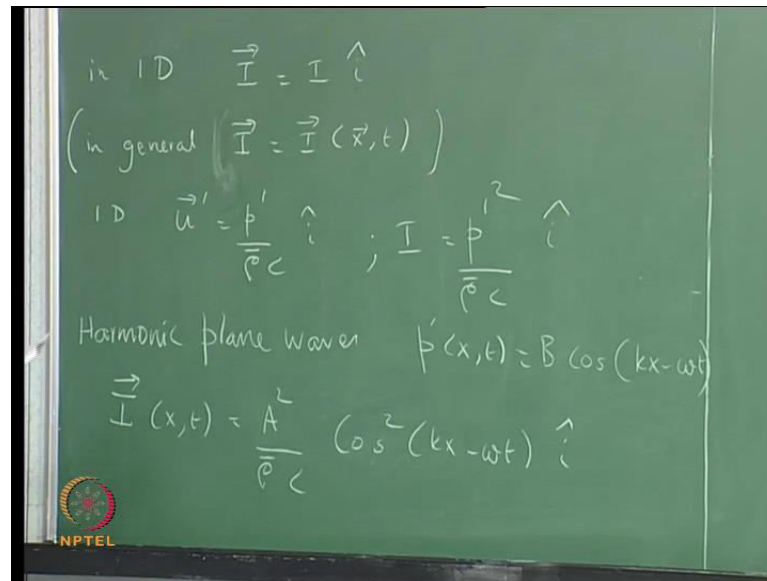 in 1D \vec{I} = I \hat{i}
(in general \vec{I} = \vec{I}(\vec{x},t))
1D \vec{u}' = \frac{p'}{\bar{\rho} c} \hat{i} ; I = \frac{p'^2}{\bar{\rho} c} \hat{i}
Harmonic plane waves p'(x,t) = B cos(kx-ωt)
\vec{I}(x,t) = \frac{A^2}{\bar{\rho} c} Cos^2(kx-ωt) \hat{i}
NPTEL